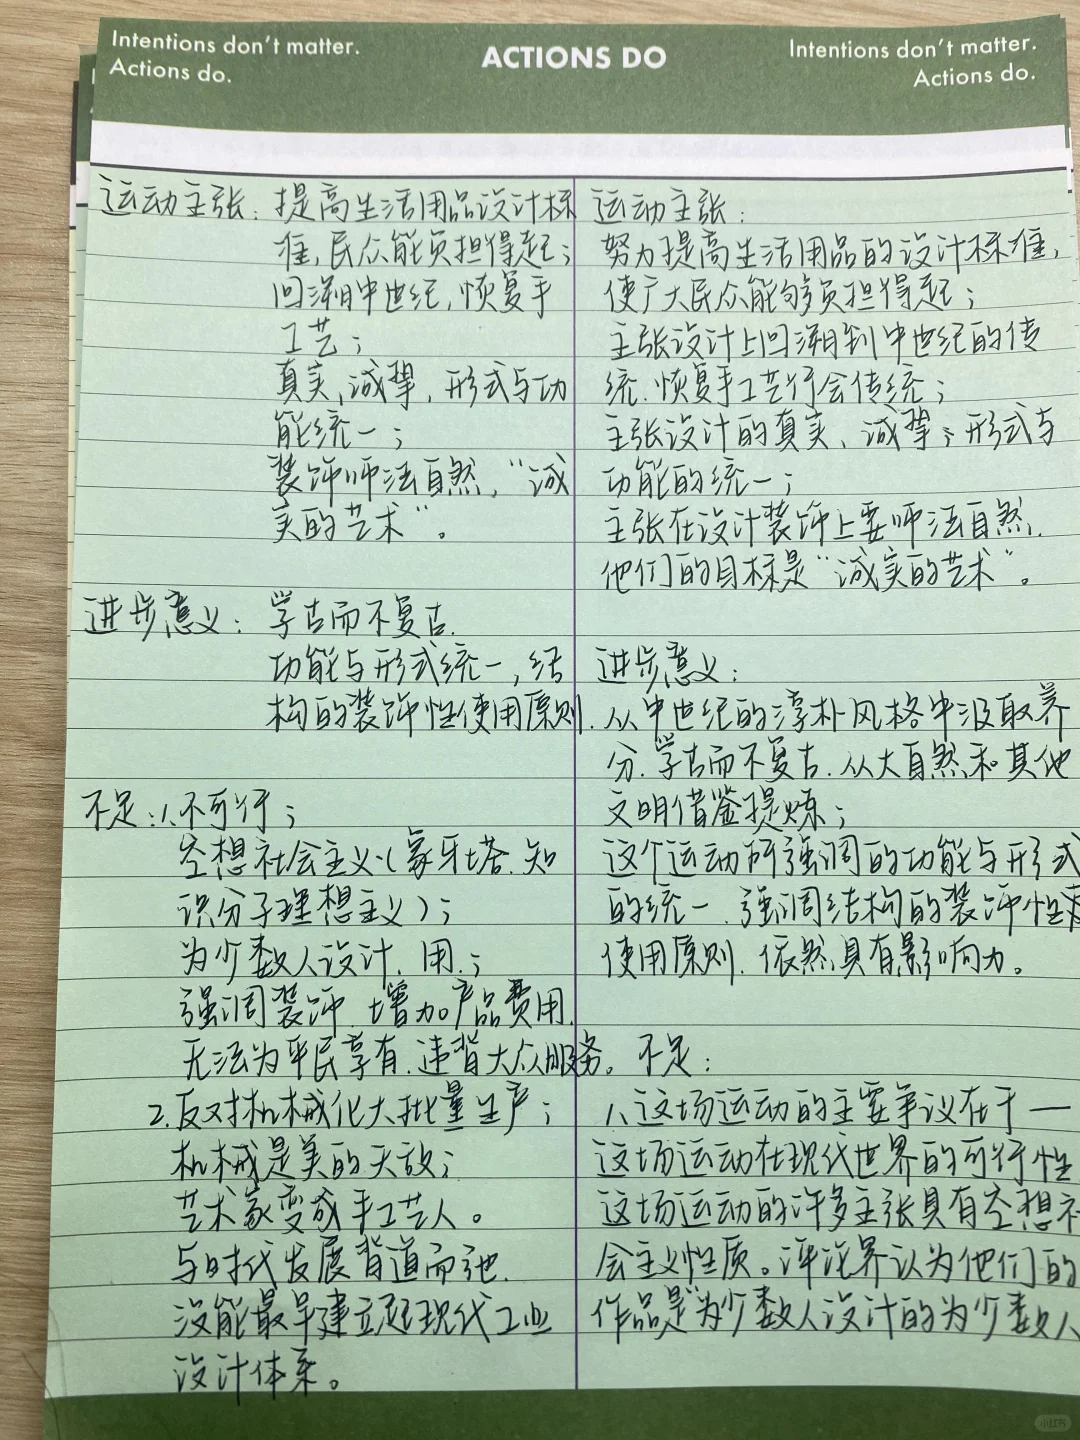 Intentions don't matter.
Actions do.
ACTIONS DO
Intentions don't matter.
Actions do.
运动主张：提高生活用品设计标
准，民众能负担得起；
回溯中世纪，恢复手
工艺；
真实、诚挚，形式与功
能统一；
装饰师法自然，“诚
实的艺术”。
进步意义：学古而不复古.
功能与形式统一，结
构的装饰性使用原则.
不足：1、不可行；
空想社会主义（象牙塔、知
识分子理想主义）；
为少数人设计、用.；
强调装饰，增加产品费用，
无法为平民享有、违背大众服务。
2.反对机械化大批量生产；
机械是美的天敌；
艺术家变成手工艺人。
与时代发展背道而驰，
没能最早建立起现代工业
设计体系。
运动主张：
努力提高生活用品的设计标准，
使广大民众能够负担得起；
主张设计上回溯到中世纪的传
统，恢复手工艺行会传统；
主张设计的真实、诚挚；形式与
功能的统一；
主张在设计装饰上要师法自然，
他们的目标是“诚实的艺术”。
进步意义：
从中世纪的淳朴风格中汲取养
分，学古而不复古，从大自然和其他
文明借鉴提炼；
这个运动所强调的功能与形式
的统一、强调结构的装饰性
使用原则，依然具有影响力。
不足：
1、这场运动的主要争议在于—
这场运动在现代世界的可行性
这场运动的许多主张具有空想社
会主义性质。评论界认为他们的
作品是“为少数人设计的为少数人
小红书